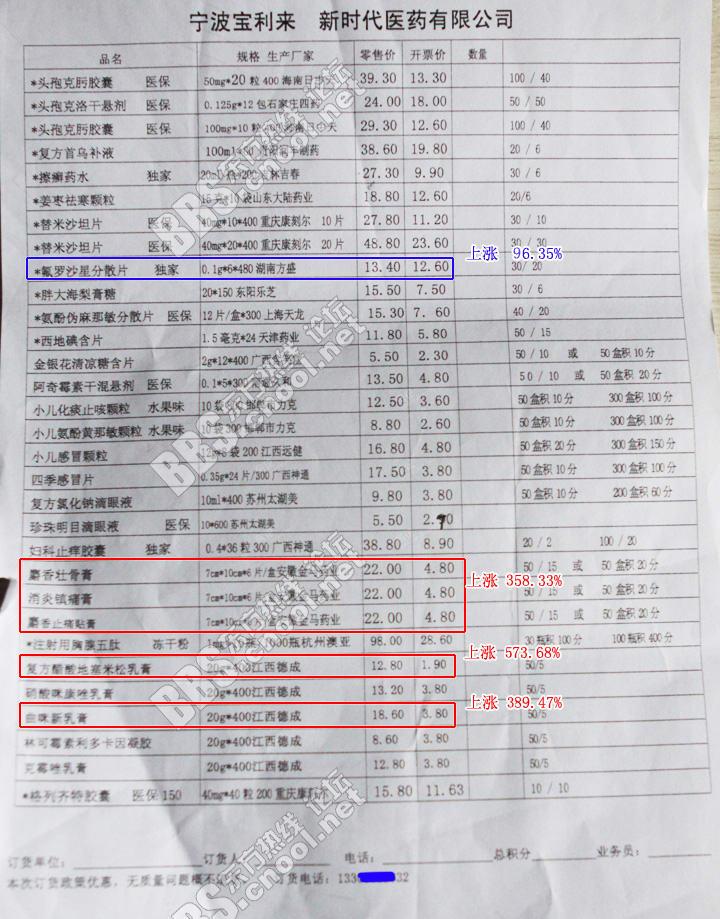 宁波宝利来 新时代医药有限公司
品名 规格 生产厂家 零售价 开票价 数量
*头孢克肟胶囊 医保 50mg*20粒400海南日中天 39.30 13.30 100 / 40
*头孢克洛干悬剂 医保 0.125g*12包石家庄四药 24.00 18.00 50 / 50
*头孢克肟胶囊 医保 100mg*10粒400海南日中天 29.30 12.60 100 / 40
*复方首乌补液 100ml*60 制药 38.60 19.80 20 / 6
*擦癣药水 独家 20ml 200吉林吉春 27.30 9.90 30 / 6
*姜枣祛寒颗粒 15克*10袋山东大陆药业 18.80 12.60 20/6
*替米沙坦片 医保 40mg*10*400重庆康刻尔 10片 27.80 11.20 30 / 10
*替米沙坦片 医保 40mg*20*400重庆康刻尔 20片 48.80 23.60 30 / 30
上涨 96.35%
*氟罗沙星分散片 独家 0.1g*6*480湖南方盛 13.40 12.60 30/ 20
*胖大海梨膏糖 20*150东阳乐芝 15.50 7.50 30 / 6
*氨酚伪麻那敏分散片 医保 12片/盒*300上海天龙 15.30 7.60 40 / 20
*西地碘含片 1.5毫克*24天津药业 11.80 5.80 50 / 15
金银花清凉糖含片 2g*12*400广西 5.50 2.30 50 / 10 或 50盒积10分
阿奇霉素干混悬剂 医保 0.1*5*300 久和 13.50 4.80 50 / 10 或 50盒积20分
小儿化痰止咳颗粒 水果味 10袋 邯郸市力克 12.50 3.60 50盒积10分 300盒积100分
小儿氨酚黄那敏颗粒 水果味 10袋300邯郸市力克 8.80 2.60 50盒积10分 300盒积100分
小儿感冒颗粒 12g*6袋200江西远健 16.80 4.80 50盒积20分 300盒积150分
四季感冒片 0.35g*24片/300广西神通 17.50 3.80 50盒积10分 300盒积100分
复方氯化钠滴眼液 10ml*400苏州太湖美 9.80 3.80 50盒积10分 200盒积60分
珍珠明目滴眼液 医保 10*600苏州太湖美 5.50 2.90
妇科止痒胶囊 独家 0.4*36粒300广西神通 38.80 8.90 20 / 2 100 / 20
麝香壮骨膏 7cm*10cm*6片/盒安徽金马药业 22.00 4.80 50 / 15 或 50盒积20分
上涨 358.33%
消炎镇痛膏 7cm*10cm*6片/盒安徽金马药业 22.00 4.80 50 / 15 或 50盒积20分
麝香止痛贴膏 7cm*10cm*6片/盒安徽金马药业 22.00 4.80 50 / 15 或 50盒积20分
*注射用胸腺五肽 冻干粉 1mg 1000瓶杭州澳亚 98.00 28.60 30瓶积100分 100瓶积400分
上涨 573.68%
复方醋酸地塞米松乳膏 20g*400江西德成 12.80 1.90 50/5
硝酸咪康唑乳膏 20g*400江西德成 13.20 3.80 50/5
上涨 389.47%
曲咪新乳膏 20g*400江西德成 18.60 3.80 50/5
林可霉素利多卡因凝胶 20g*400江西德成 8.60 3.80 50/5
克霉唑乳膏 20g*400江西德成 12.80 3.80 50/5
*格列齐特胶囊 医保150 40mg*40粒200重庆康刻尔 15.80 11.63 10 / 10
订货单位: 订货人 电话: 总积分 业务员:
本次订货政策优惠,无质量问题概不 订货电话:133 32
BBS.cnool.net 东方热线 论坛
BBS.cnool.net 东方热线 论坛
BBS.cnool.net 东方热线 论坛